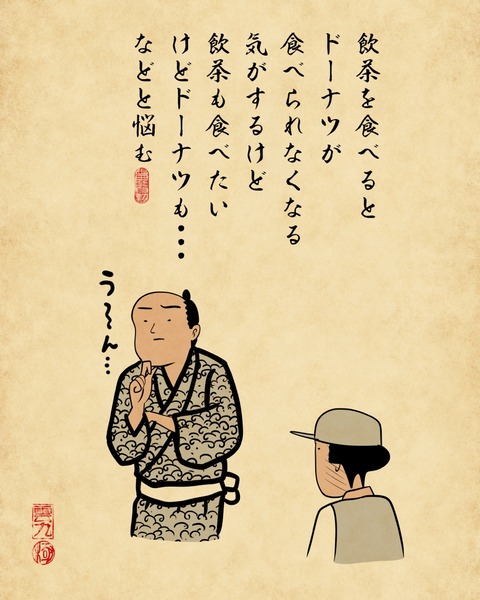 飲茶を食べると
ドーナツが
食べられなくなる
気がするけど
飲茶も食べたい
けどドーナツも・・・
などと悩む
う〜ん…